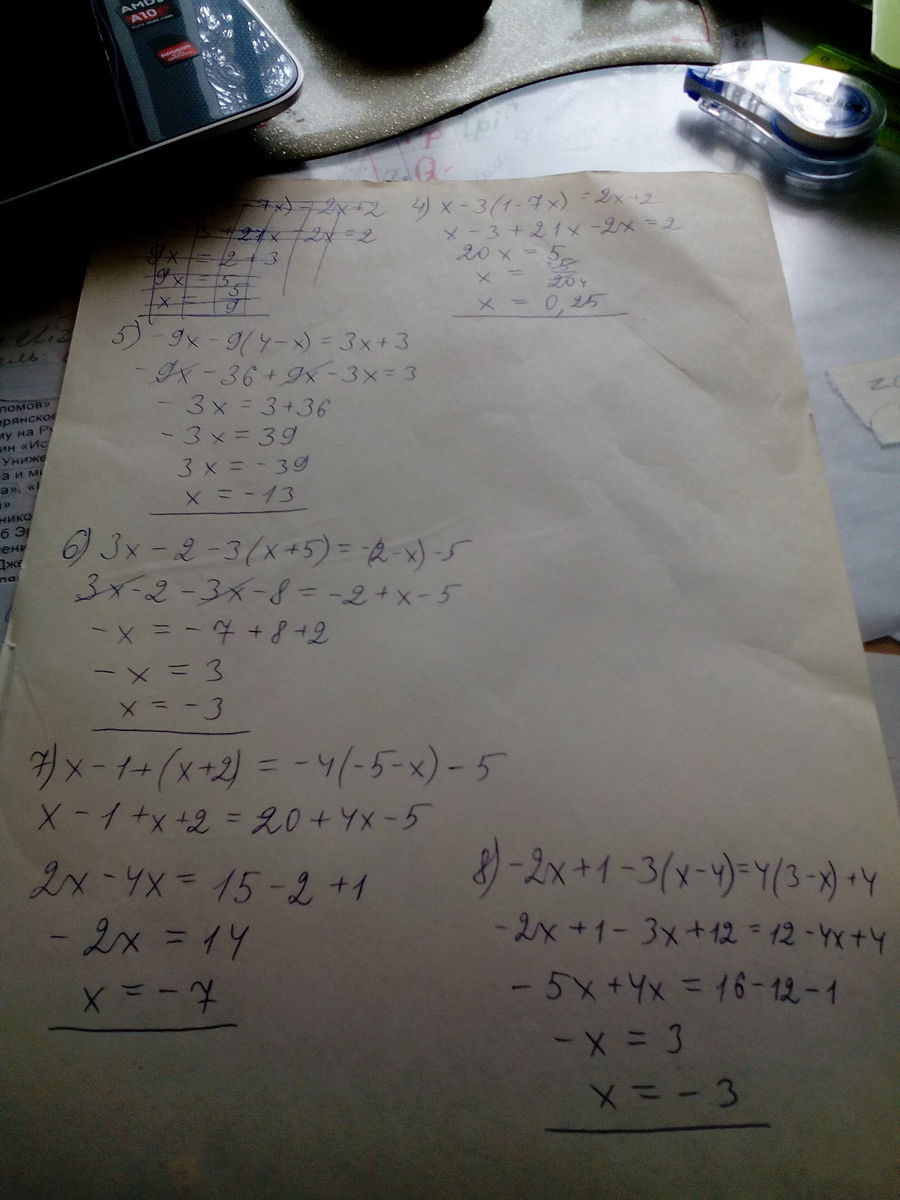 AMD
A10
RADEON
7x) = 2x+2
3 + 21x - 2x = 2
9x = 2 + 3
9x = 5
x = 5/9
4) x - 3(1-7x) = 2x+2
x - 3 + 21x - 2x = 2
20x = 5
x = 5/20 4
x = 0,25
5) -9x - 9(4-x) = 3x+3
-9x - 36 + 9x - 3x = 3
-3x = 3+36
-3x = 39
3x = -39
x = -13
6) 3x - 2 - 3(x+5) = -(2-x) - 5
3x - 2 - 3x - 8 = -2 + x - 5
-x = -7 + 8 + 2
-x = 3
x = -3
7) x - 1 + (x+2) = -4(-5-x) - 5
x - 1 + x + 2 = 20 + 4x - 5
2x - 4x = 15 - 2 + 1
-2x = 14
x = -7
8) -2x + 1 - 3(x-4) = 4(3-x) + 4
-2x + 1 - 3x + 12 = 12 - 4x + 4
-5x + 4x = 16 - 12 - 1
-x = 3
x = -3